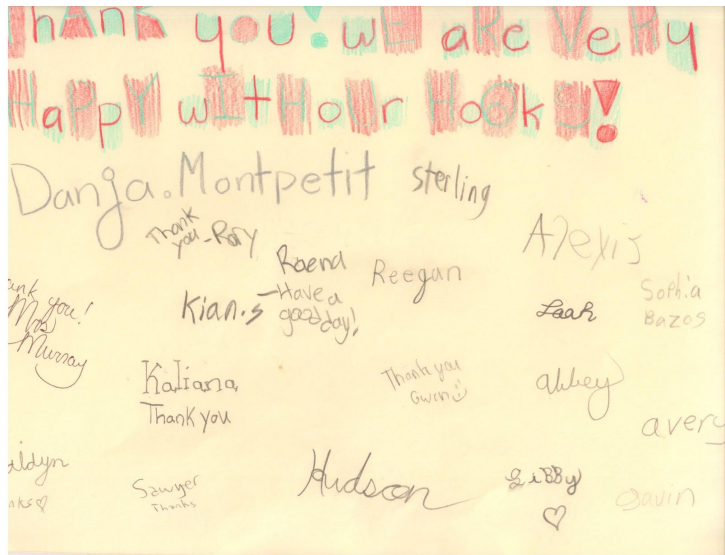 Thank you! we are very
Happy with our Hooks!
Danja. Montpetit
sterling
Thank
you - Rory
Alexis
Raena
- Have a
good day!
Reegan
Sophia
Bazos
you!
Mrs
Murray
Kian.S
Leah
Kaliana
Thank you
Thank you
Gwen
abbey
avery
Sawyer
Thanks
Hudson
LiBBy
gavin